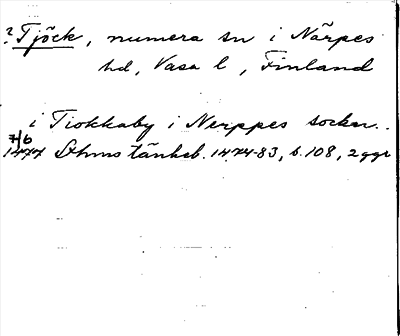 ? Tjöck, numera sn i Närpes
hd, Vasa l, Finland
i Tiokkaby i Nerppes socken..
7/6
1477 Sthms tänkeb. 1474-83, s. 108, 2 ggr